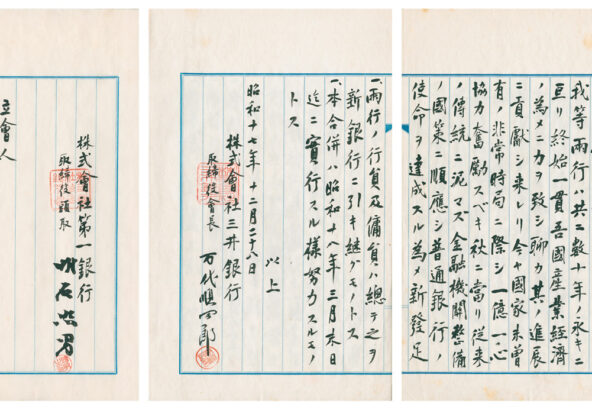 我等両行ハ共ニ数十年ノ永キニ
亘リ終始一貫吾國産業経済
ノ為メニカヲ致シ聊カ其ノ進展
ニ貢献シ来レリ今ヤ國家未曾
有ノ非常時局ニ際シ一億一心
協力奮励スベキ秋ニ當リ従来
ノ傳統ニ泥マズ金融機関整備
ノ國策ニ順應シ普通銀行ノ
使命ヲ達成スル為メ新発足
一、両行ノ行員及傭員ハ總テ之ヲ
新銀行ニ引キ継グモノトス
一、本合併ハ昭和十八年三月末日
迄ニ實行スル様努力スルモノ
トス
以上
昭和十七年十二月二十八日
株式會社三井銀行
取締役會長 万代順四郎
株式會社第一銀行
取締役頭取 明石照男
立會人